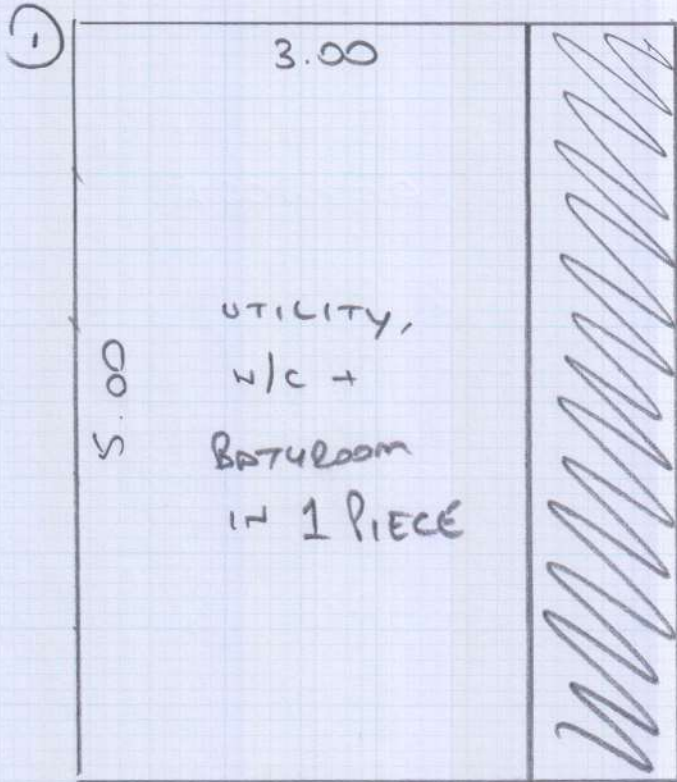 ①
3.00
5.00
UTILITY,
W/C +
BATHROOM
IN 1 PIECE